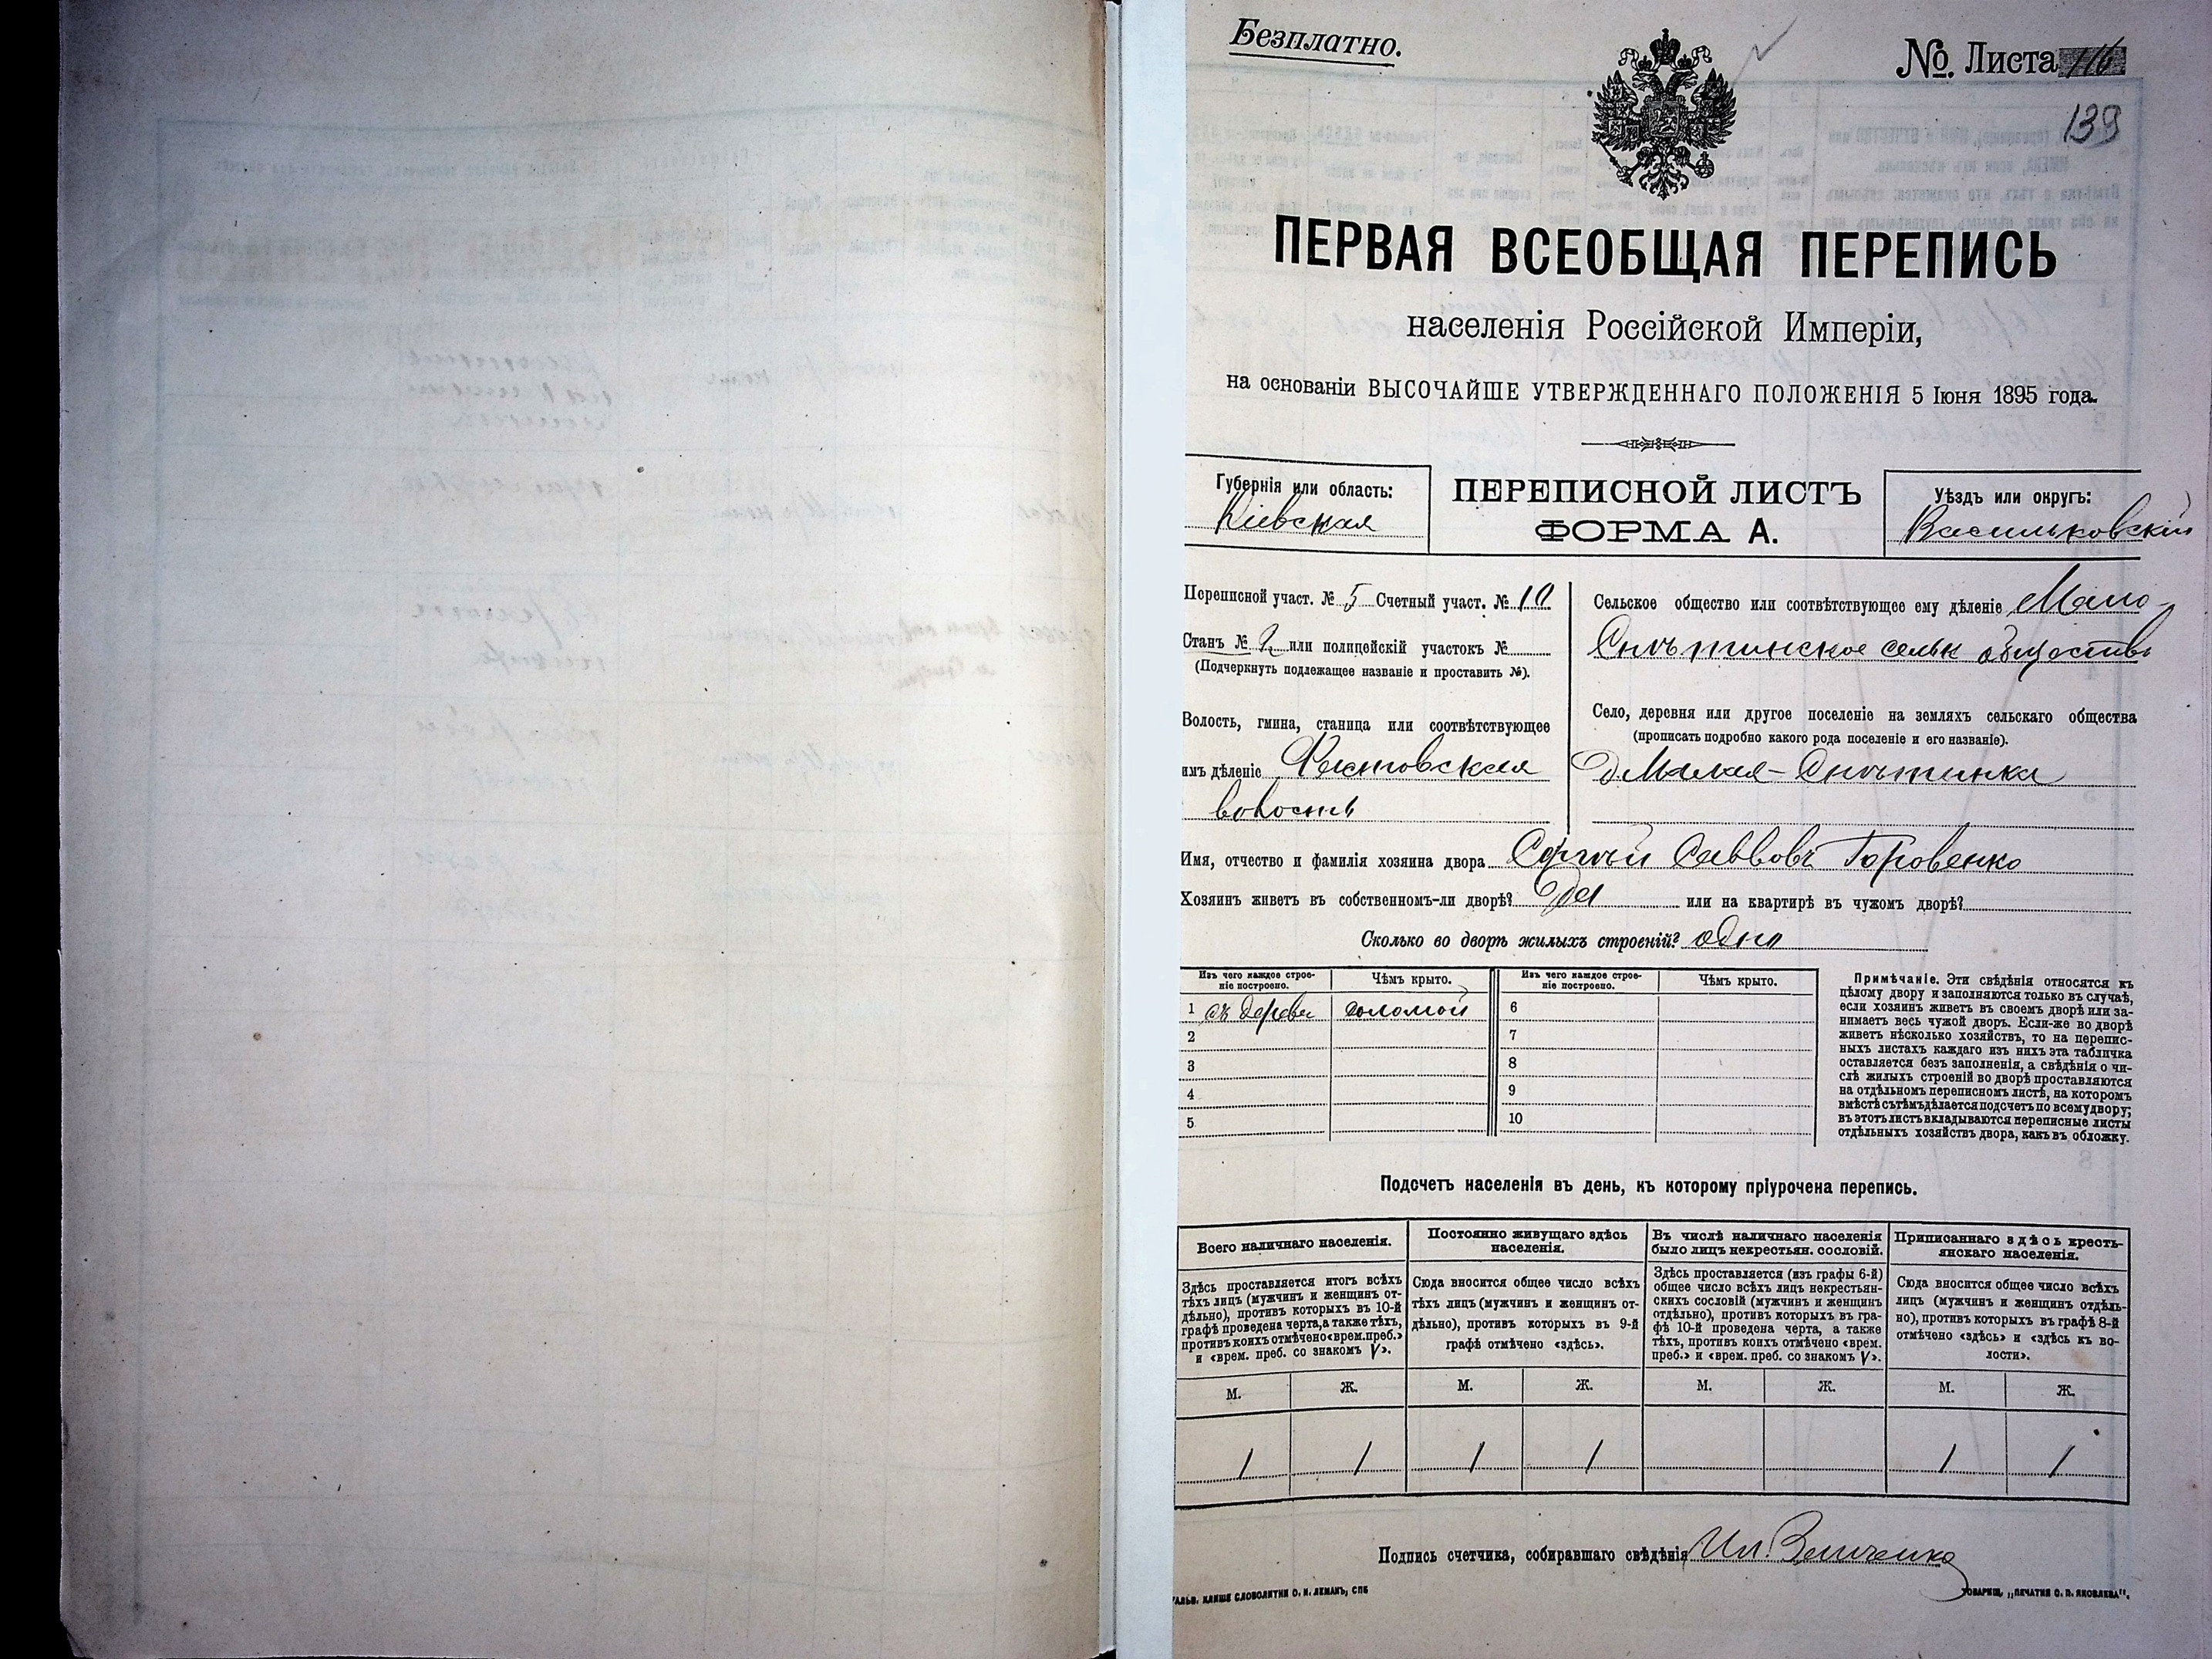 Безплатно.
№ Листа 116
139
ПЕРВАЯ ВСЕОБЩАЯ ПЕРЕПИСЬ
населенія Россійской Имперіи,
на основаніи ВЫСОЧАЙШЕ УТВЕРЖДЕННАГО ПОЛОЖЕНІЯ 5 Іюня 1895 года.
Губернія или область:
Кіевская
ПЕРЕПИСНОЙ ЛИСТЪ
ФОРМА А.
Уѣздъ или округъ:
Васильковскій
Переписной участ. № 5 Счетный участ. № 10
Станъ № 2 или полицейскій участокъ №
(Подчеркнуть подлежащее названіе и проставить №).
Волость, гмина, станица или соотвѣтствующее
имъ дѣленіе Фастовская
волость
Сельское общество или соотвѣтствующее ему дѣленіе Мало-
Снѣтинское сельк общество
Село, деревня или другое поселеніе на земляхъ сельскаго общества
(прописать подробно какого рода поселеніе и его названіе).
д Малая-Снѣтинка
Имя, отчество и фамилія хозяина двора Сергѣй Саввовъ Горовенко
Хозяинъ живетъ въ собственномъ-ли дворѣ? Да или на квартирѣ въ чужомъ дворѣ?
Сколько во дворѣ жилыхъ строеній? одно
Изъ чего каждое строе-
ніе построено.
Чѣмъ крыто.
Изъ чего каждое строе-
ніе построено.
Чѣмъ крыто.
1 съ дерева соломой 6
2 7
3 8
4 9
5 10
Примѣчаніе. Эти свѣдѣнія относятся къ
цѣлому двору и заполняются только въ случаѣ,
если хозяинъ живетъ въ своемъ дворѣ или за-
нимаетъ весь чужой дворъ. Если-же во дворѣ
живетъ нѣсколько хозяйствъ, то на перепис-
ныхъ листахъ каждаго изъ нихъ эта табличка
оставляется безъ заполненія, а свѣдѣнія о чи-
слѣ жилыхъ строеній во дворѣ проставляются
на отдѣльномъ переписномъ листѣ, на которомъ
вмѣстѣ съ тѣмъ дѣлается подсчетъ по всему двору;
въ этотъ листъ вкладываются переписные листы
отдѣльныхъ хозяйствъ двора, какъ въ обложку.
Подсчетъ населенія въ день, къ которому пріурочена перепись.
Всего наличнаго населенія.
Здѣсь проставляется итогъ всѣхъ
тѣхъ лицъ (мужчинъ и женщинъ от-
дѣльно), противъ которыхъ въ 10-й
графѣ проведена черта, а также тѣхъ,
противъ коихъ отмѣчено «врем. преб.»
и «врем. преб. со знакомъ V».
Постоянно живущаго здѣсь
населенія.
Сюда вносится общее число всѣхъ
тѣхъ лицъ (мужчинъ и женщинъ от-
дѣльно), противъ которыхъ въ 9-й
графѣ отмѣчено «здѣсь».
Въ числѣ наличнаго населенія
было лицъ некрестьян. сословій.
Здѣсь проставляется (изъ графы 6-й)
общее число всѣхъ лицъ некрестьян-
скихъ сословій (мужчинъ и женщинъ
отдѣльно), противъ которыхъ въ гра-
фѣ 10-й проведена черта, а также
тѣхъ, противъ коихъ отмѣчено «врем.
преб.» и «врем. преб. со знакомъ V».
Приписаннаго здѣсь кресть-
янскаго населенія.
Сюда вносится общее число всѣхъ
лицъ (мужчинъ и женщинъ отдѣль-
но), противъ которыхъ въ графѣ 8-й
отмѣчено «здѣсь» и «здѣсь къ во-
лости».
М. Ж. М. Ж. М. Ж. М. Ж.
1 1 1 1 1 1
Подпись счетчика, собиравшаго свѣдѣнія Ил.
ГАЛЬВ. КЛИШЕ СЛОВОЛИТНИ О. И. ЛЕМАНЪ, СПБ
ТОВАРИЩ. „ПЕЧАТНЯ С. П. ЯКОВЛЕВА“.